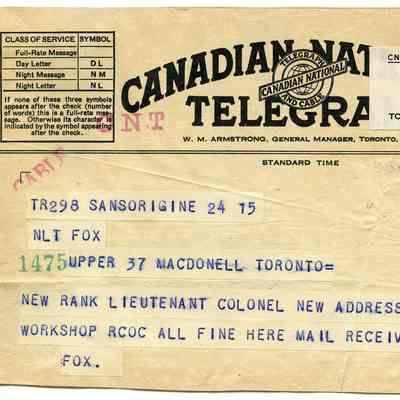 CLASS OF SERVICE SYMBOL
Full-Rate Message
Day Letter D L
Night Message N M
Night Letter N L
If none of these three symbols
appears after the check (number
of words) this is a full-rate mes-
sage. Otherwise its character is
indicated by the symbol appearing
after the check.
CANADIAN NAT
TELEGRA
TELEGRAPH
CANADIAN NATIONAL
AND CABLE
W. M. ARMSTRONG, GENERAL MANAGER, TORONTO,
CN
TO
CNT
CABLE
STANDARD TIME
TR298 SANSORIGINE 24 15
NLT FOX
1475 UPPER 37 MACDONELL TORONTO=
NEW RANK LIEUTENANT COLONEL NEW ADDRESS
WORKSHOP RCOC ALL FINE HERE MAIL RECEIV
FOX.